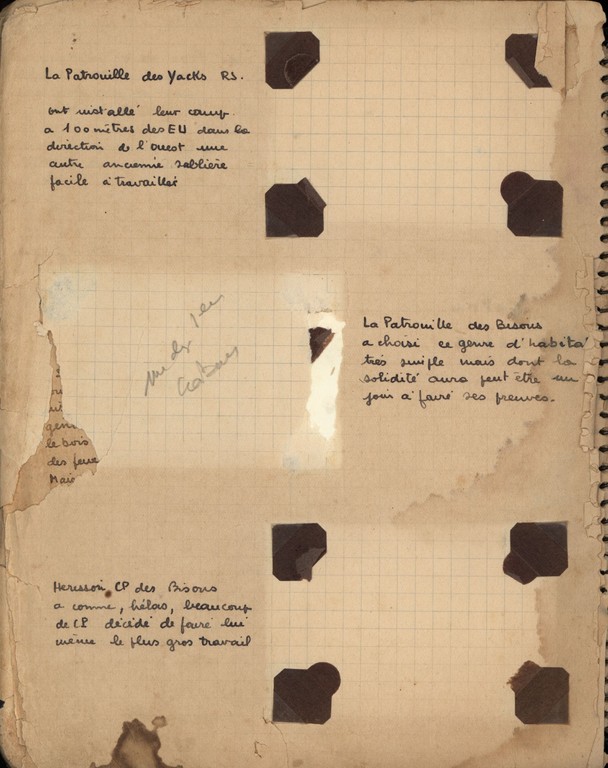 La Patrouille des Yacks RS.
ont installé leur camp
a 100 mètres des EU dans la
direction de l'ouest une
autre ancienne sablière
facile à travailler
La Patrouille des Bisons
a choisi ce genre d'habita
très simple mais dont la
solidité aura peut être un
jour à faire ses preuves.
gen
le bois
des feux
Mais
Herisson CP des Bisons
a comme, hélas, beaucoup
de CP décidé de faire lui
même le plus gros travail